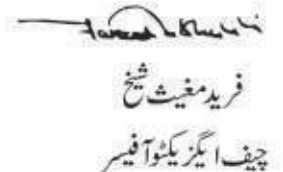 فرید مغیث شیخ
چیف ایگزیکٹو آفیسر